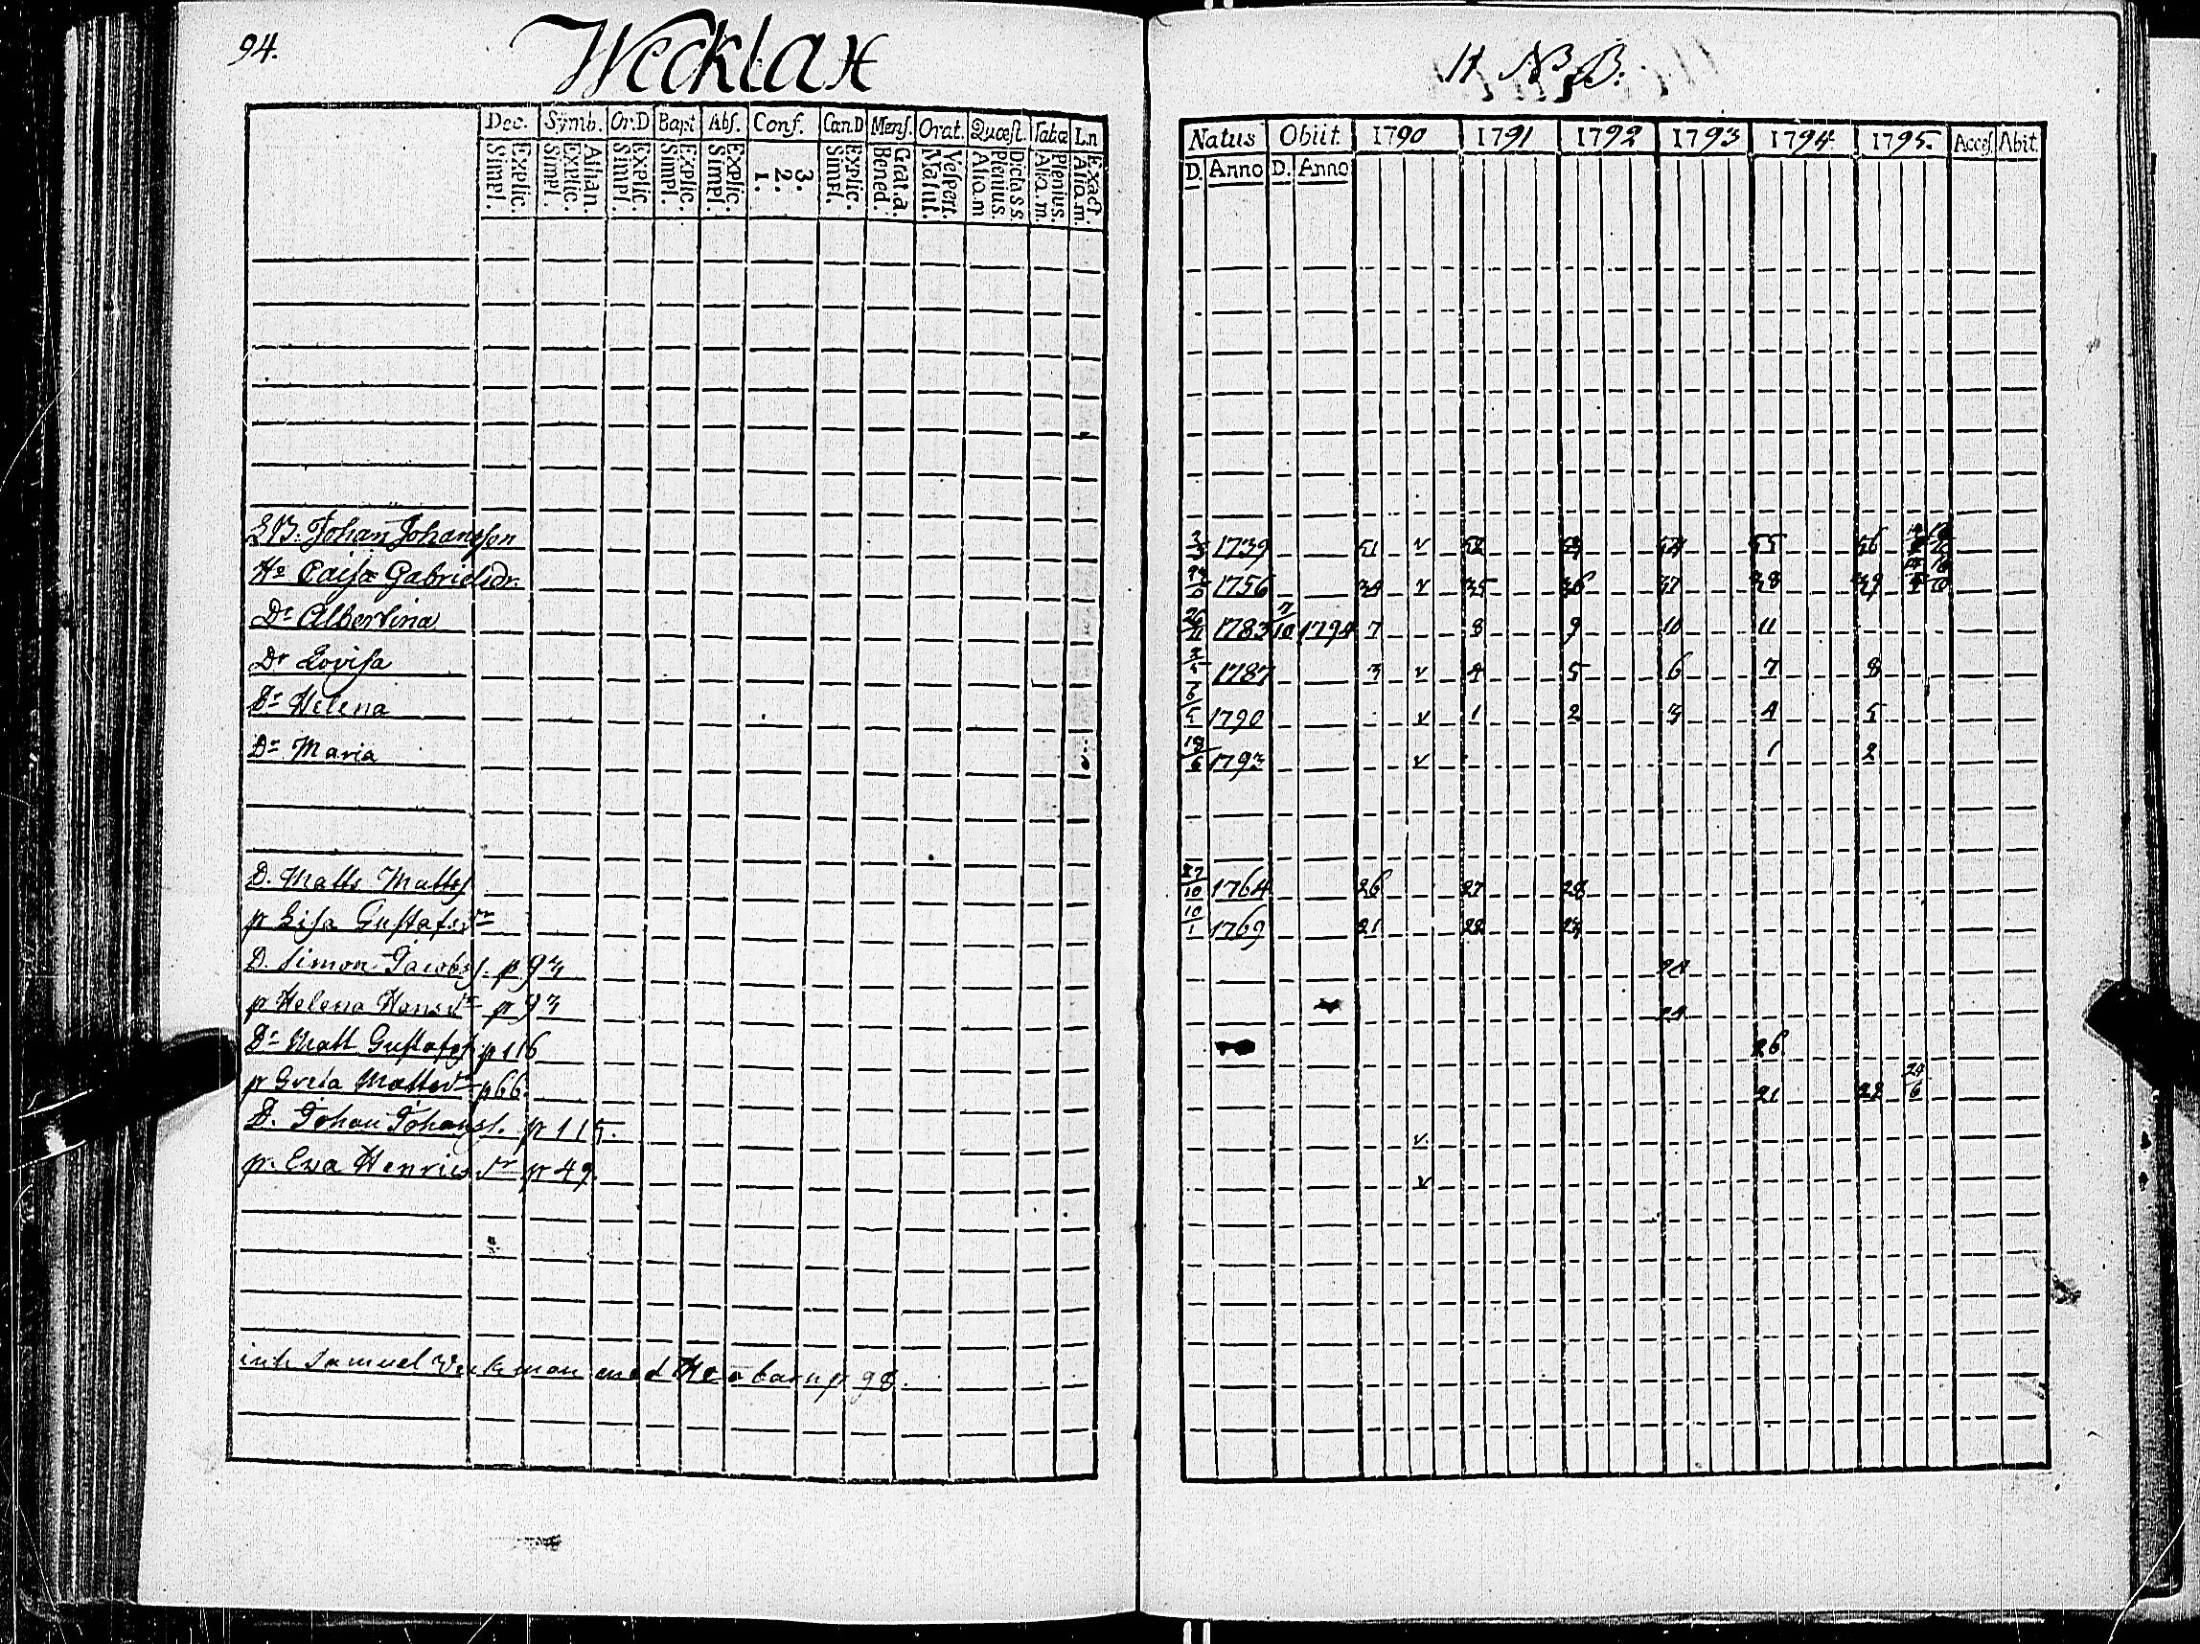 94. Wecklax
H N B.
Dec. Symb. Or.D Bapt Abs. Conf. Can.D Mens. Orat. Quæst. Tabæ L.n
Explic. Simpl. Athan. Explic. Simpl. Explic. Simpl. Explic. Simpl. Explic. Simpl. 3. 2. 1. Explic. Simpl. Grat.a. Bened. Vespert. Matut. Dicla s s. Plenius. Alia.m Plenius. Alia.m. Exact. Alia.m.
Natus Obiit. 1790 1791 1792 1793 1794 1795. Acces. Abit.
D. Anno D. Anno
Johan Johansson 1739 51 v 52 53 54 55 56
Hu Caisa Gabrielsdr. 1756 34 v 35 36 37 38 39
Dr Albertina 26/11 1783 7/10 1794 7 8 9 10 11
Dr Lovisa 1787 3 v 4 5 6 7 8
Dr Helena 1790 v 1 2 3 4 5
Dr Maria 18/6 1793 v 1 2
D. Matts Matts 27/10 1764 26 27 28
p Lisa Gustafsdr 10/1 1769 21 22 23
D. Simon Jacobss. p 93 24
p Helena Hansdr p 93 24
Dr Matt Gustafss p 116 26
p Greta Mattsdr p 66. 21 22 24/6
D. Johan Johanss. p 115. v
p. Eva Henricsdr p 49. v
inh Samuel Wekman med Hu o barn p 98.